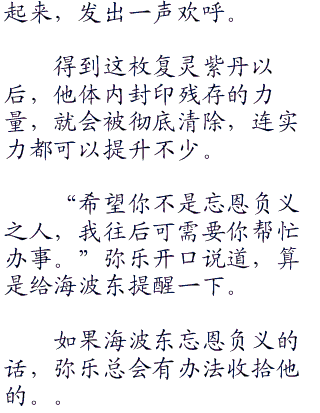 起来，发出一声欢呼。
得到这枚复灵紫丹以
后，他体内封印残存的力
量，就会被彻底清除，连实
力都可以提升不少。
“希望你不是忘恩负义
之人，我往后可需要你帮忙
办事。”弥乐开口说道，算
是给海波东提醒一下。
如果海波东忘恩负义的
话，弥乐总会有办法收拾他
的。。